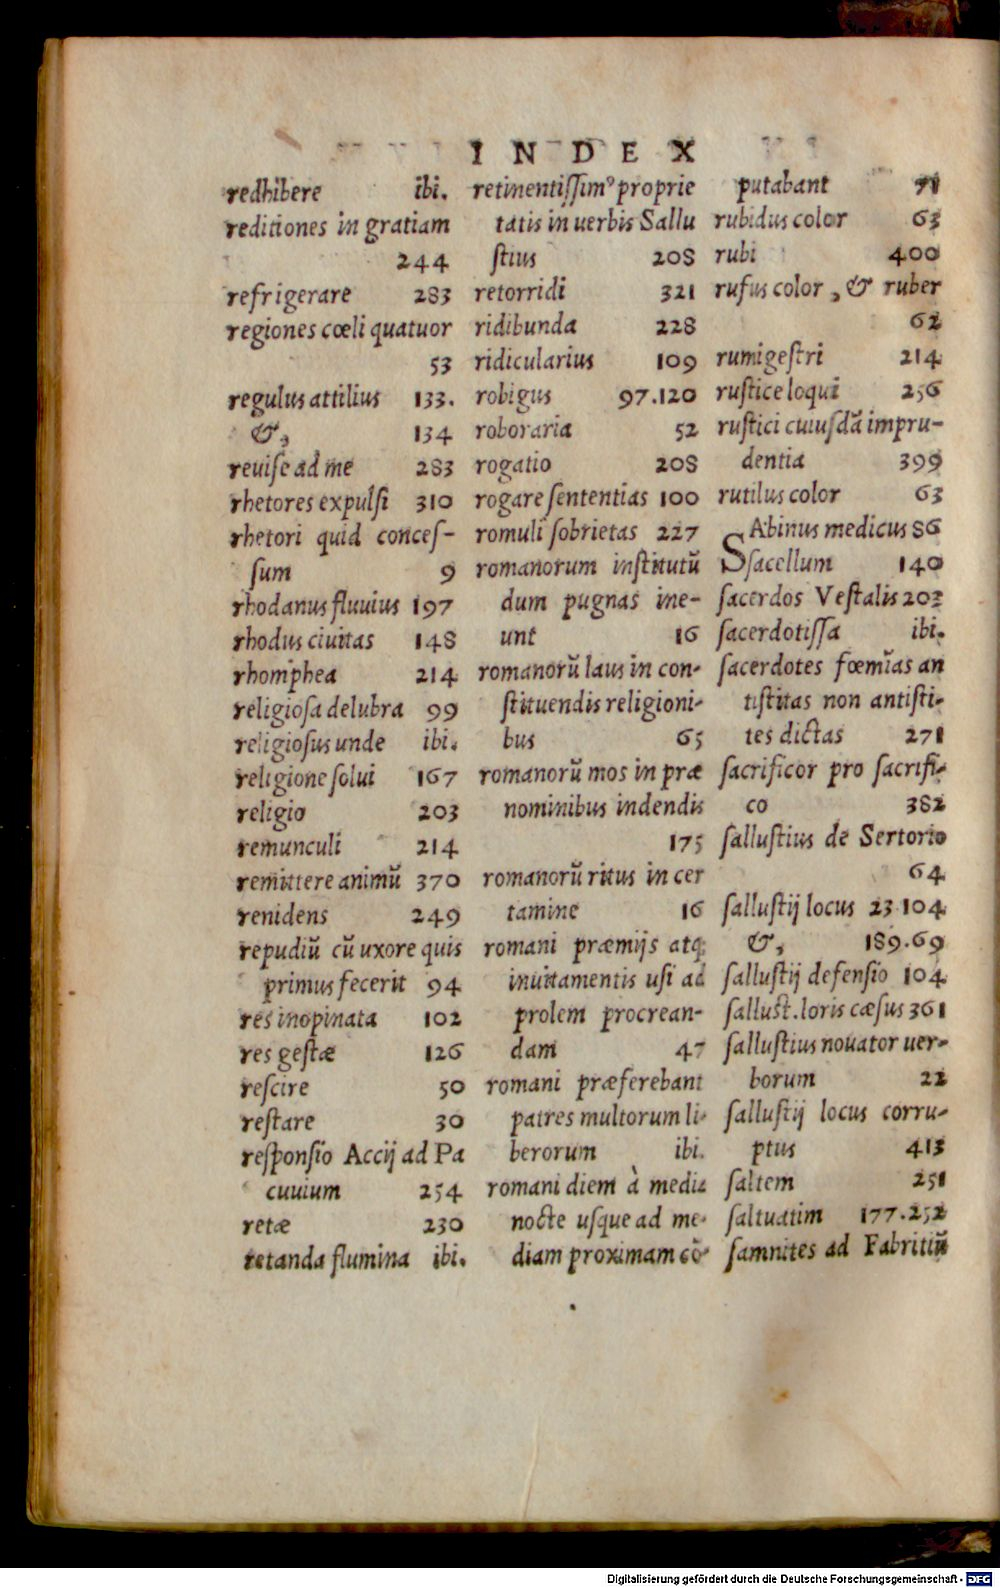 INDEX
redhibere ibi.
reditiones in gratiam
244
refrigerare 283
regiones cœli quatuor
53
regulus attilius 133.
&, 134
reuise ad me 283
rhetores expulsi 310
rhetori quid conces-
sum 9
rhodanus fluuius 197
rhodus ciuitas 148
rhomphea 214
religiosa delubra 99
religiosus unde ibi.
religione solui 167
religio 203
remunculi 214
remittere animū 370
renidens 249
repudiū cū uxore quis
primus fecerit 94
res inopinata 102
res gestæ 126
rescire 50
restare 30
responsio Accij ad Pa
cuuium 254
retæ 230
retanda flumina ibi.
retinentissimꝰ proprie
tatis in uerbis Sallu
stius 208
retorridi 321
ridibunda 228
ridicularius 109
robigus 97.120
roboraria 52
rogatio 208
rogare sententias 100
romuli sobrietas 227
romanorum institutū
dum pugnas ine-
unt 16
romanorū laus in con-
stituendis religioni-
bus 65
romanorū mos in præ
nominibus indendis
175
romanorū ritus in cer
tamine 16
romani præmijs atq;
inuitamentis usi ad
prolem procrean-
dam 47
romani præferebant
patres multorum li-
berorum ibi.
romani diem à media
nocte usque ad me-
diam proximam cō-
putabant 71
rubidus color 63
rubi 400
rufus color, & ruber
62
rumigestri 214
rustice loqui 256
rustici cuiusdā impru-
dentia 399
rutilus color 63
SAbinus medicus 86
sacellum 140
sacerdos Vestalis 203
sacerdotissa ibi.
sacerdotes fœmīas an
tistitas non antisti-
tes dictas 271
sacrificor pro sacrifi-
co 382
sallustius de Sertorio
64
sallustij locus 23 104
&, 189.69
sallustij defensio 104
sallust. loris cæsus 361
sallustius nouator uer-
borum 22
sallustij locus corru-
ptus 413
saltem 251
saltuatim 177.252
samnites ad Fabritiū
Digitalisierung gefördert durch die Deutsche Forschungsgemeinschaft - DFG